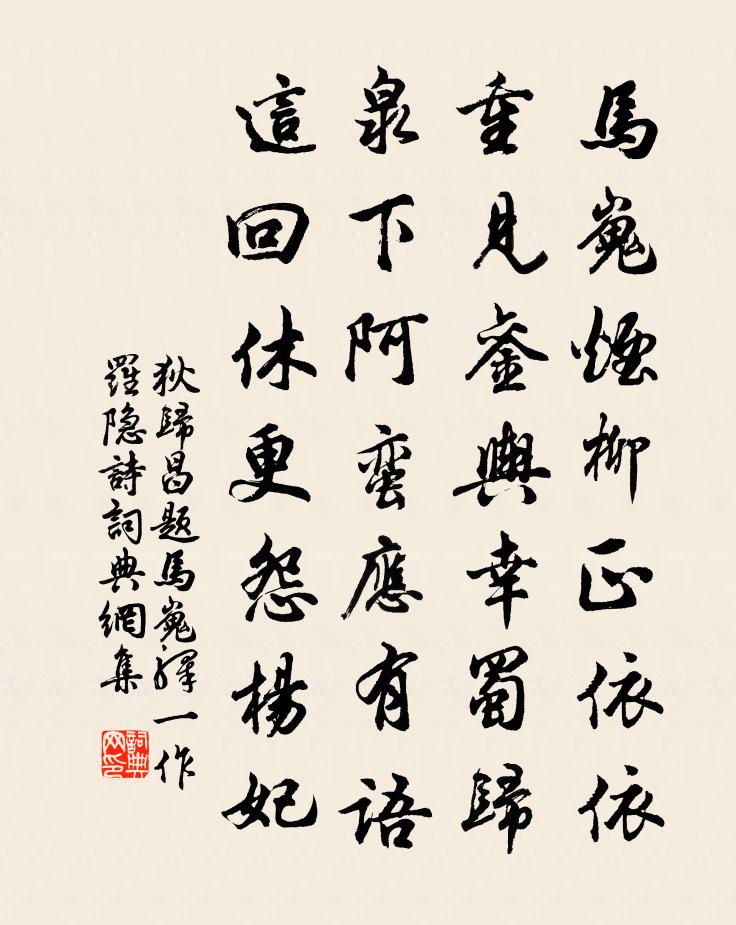 馬嵬煙柳正依依
重見鑾輿幸蜀歸
泉下阿蛮應有語
這回休更怨楊妃
狄歸昌題馬嵬驛一作
羅隐詩詞典網集
詞典网印